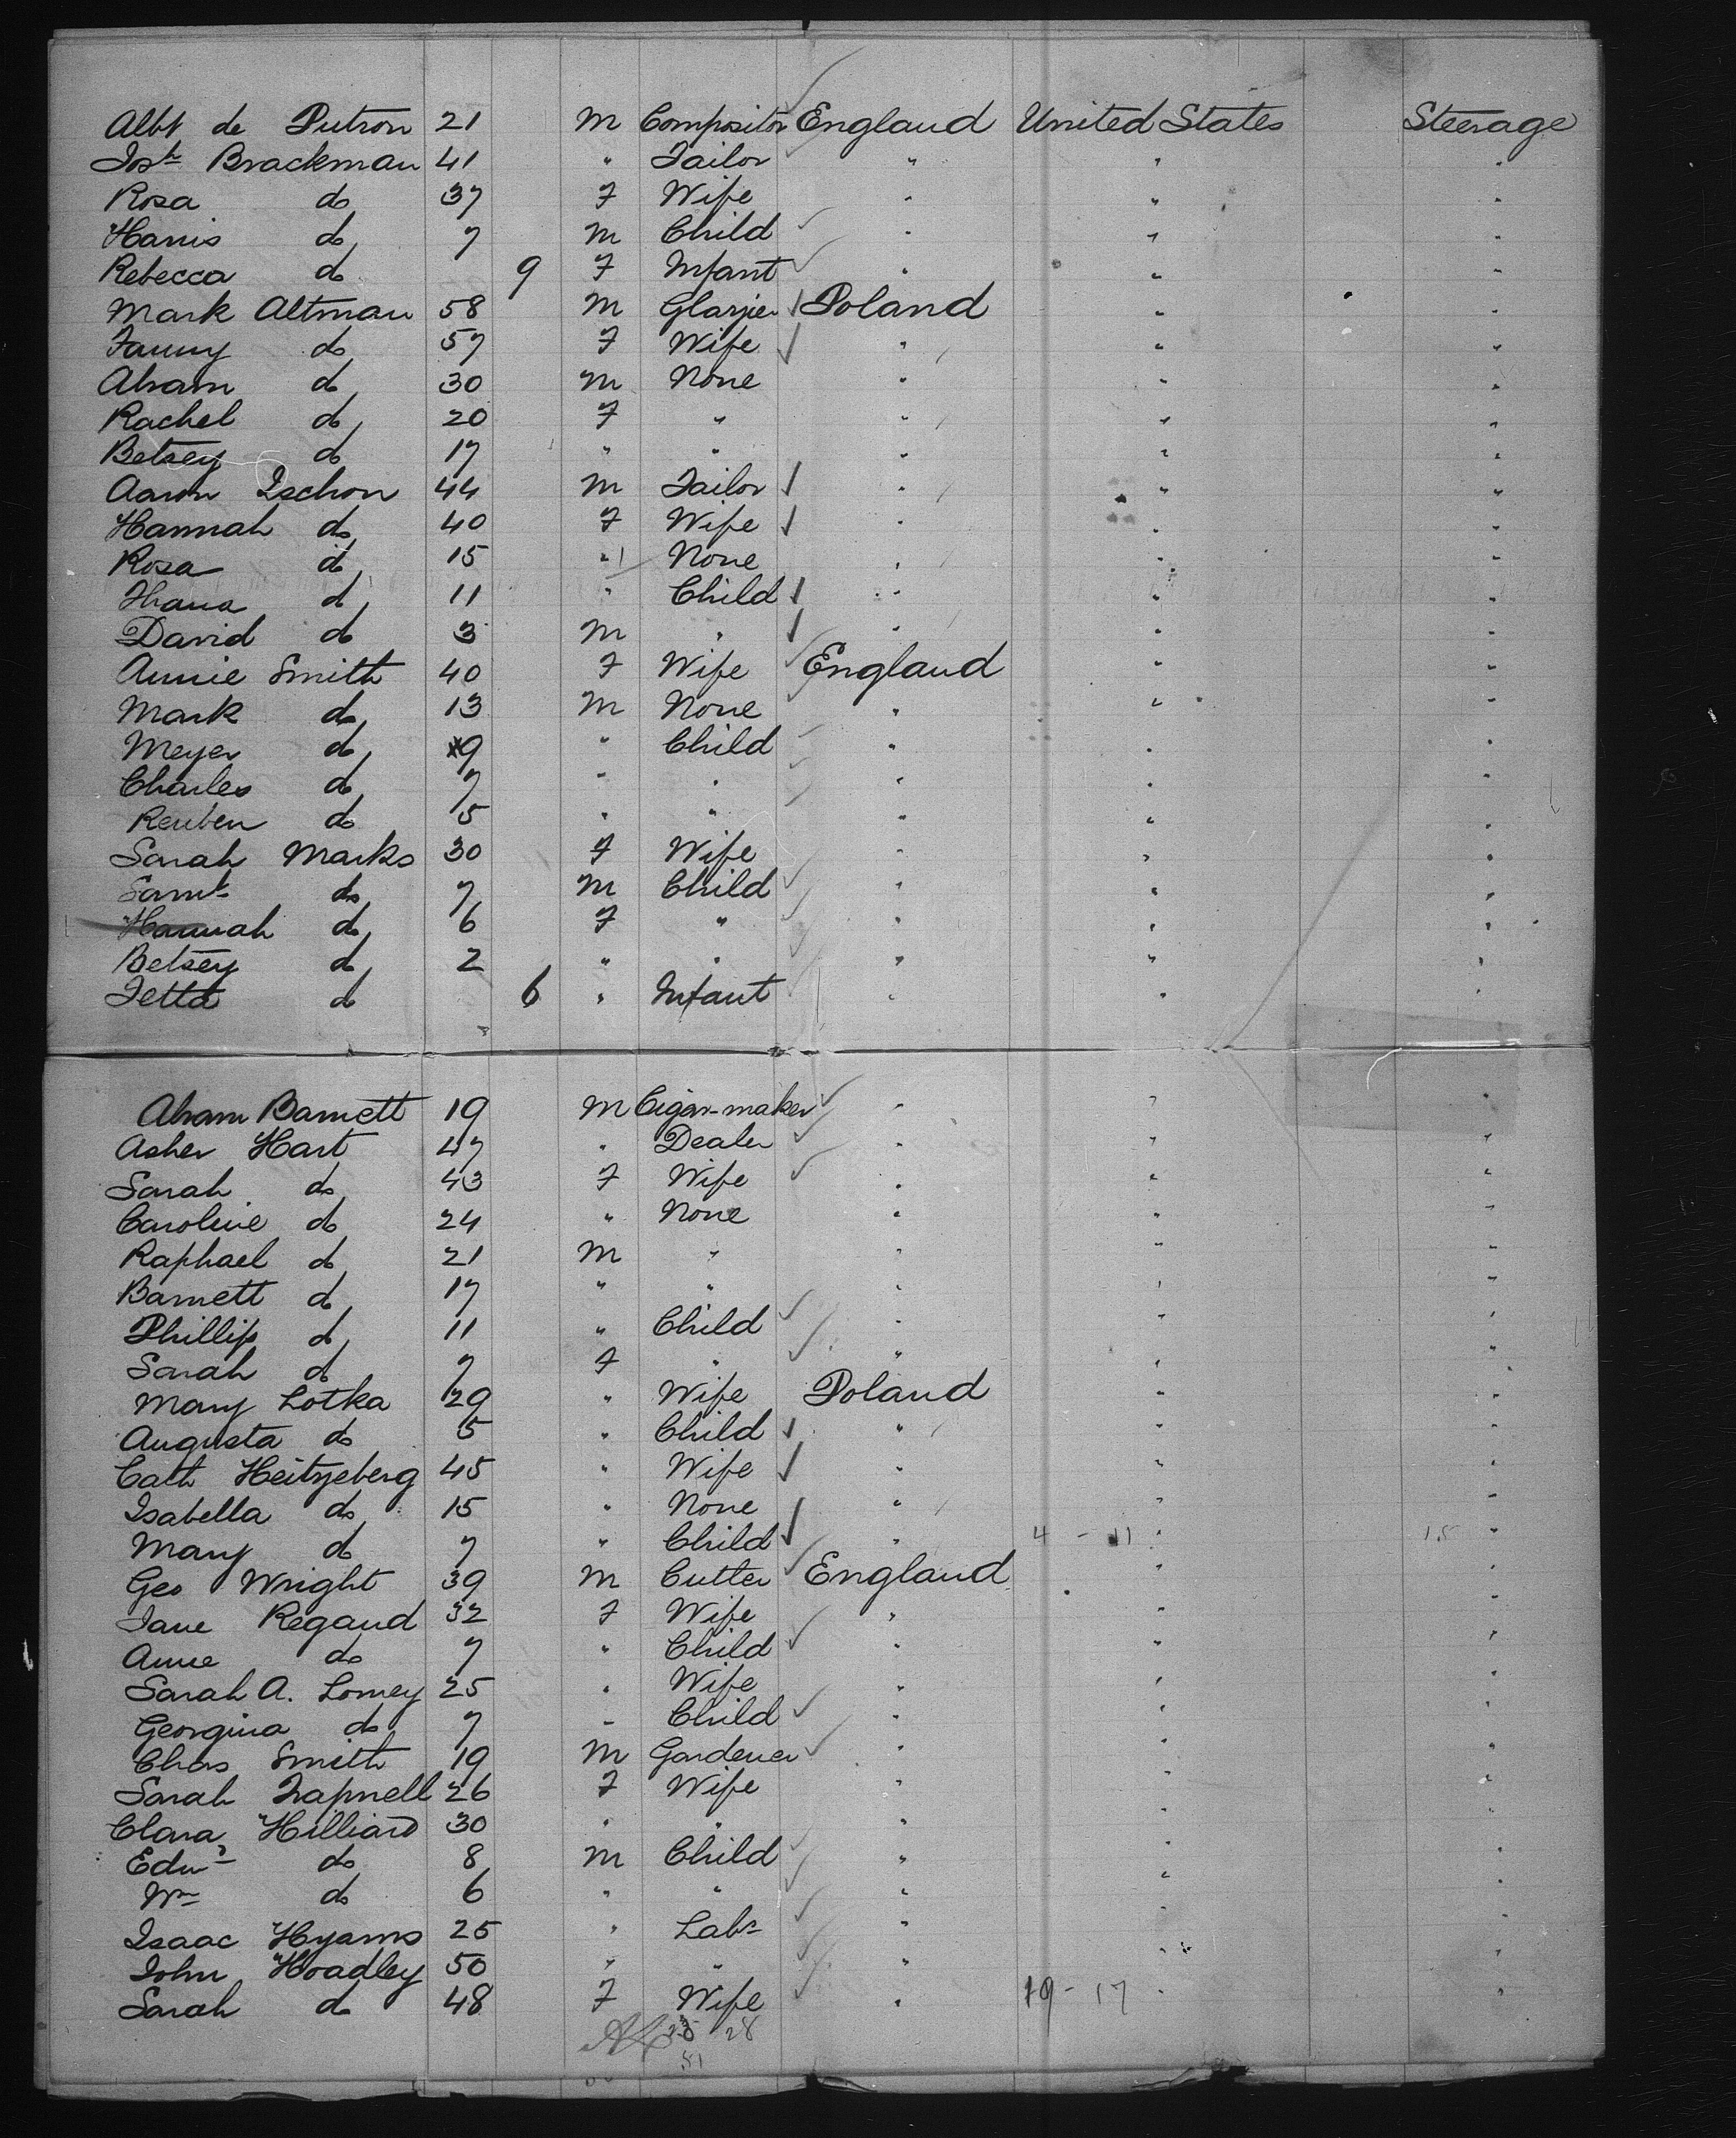 Albt de Putron 21 M Compositor England United States Steerage
Josh Brackman 41 " Tailor " " "
Rosa do 37 F Wife " " "
Harris do 7 M Child " " "
Rebecca do 9 F Infant " " "
Mark Altman 58 M Glazier Poland " "
Fanny do 57 F Wife " " "
Abram do 30 M None " " "
Rachel do 20 F " " " "
Betsey do 17 " " " " "
Aaron Ischon 44 M Tailor " " "
Hannah do 40 F Wife " " "
Rosa do 15 " None " " "
do 11 " Child " " "
David do 3 M " " " "
Annie Smith 40 F Wife England " "
Mark do 13 M None " " "
Meyer do 9 " Child " " "
Charles do 7 " " " " "
Reuben do 5 " " " " "
Sarah Marks 30 F Wife " " "
Saml do 7 M Child " " "
Hannah do 6 F " " " "
Betsey do 2 " " " " "
Jetta do 6 " Infant " " "
Abram Barnett 19 M Cigar-maker " " "
Asher Hart 47 " Dealer " " "
Sarah do 43 F Wife " " "
Caroline do 24 " None " " "
Raphael do 21 M " " " "
Barnett do 17 " " " " "
Phillip do 11 " Child " " "
Sarah do 7 F " " " "
Mary Lotka 29 " Wife Poland " "
Augusta do 5 " Child " " "
Cath Heitzeberg 45 " Wife " " "
Isabella do 15 " None " " "
Mary do 7 " Child " 4 - 11 " 15 "
Geo Wright 39 M Cutter England " "
Jane Regaud 32 F Wife " " "
Anne do 7 " Child " " "
Sarah A. Lomey 25 " Wife " " "
Georgina do 7 " Child " " "
Chas Smith 19 M Gardener " " "
Sarah Trapnell 26 F Wife " " "
Clara Hilliard 30 " " " " "
Edwd do 8 M Child " " "
Wm do 6 " " " " "
Isaac Hyams 25 " Labr " " "
John Hoadley 50 " " " " "
Sarah do 48 F Wife " 19 - 17 " "
28
51